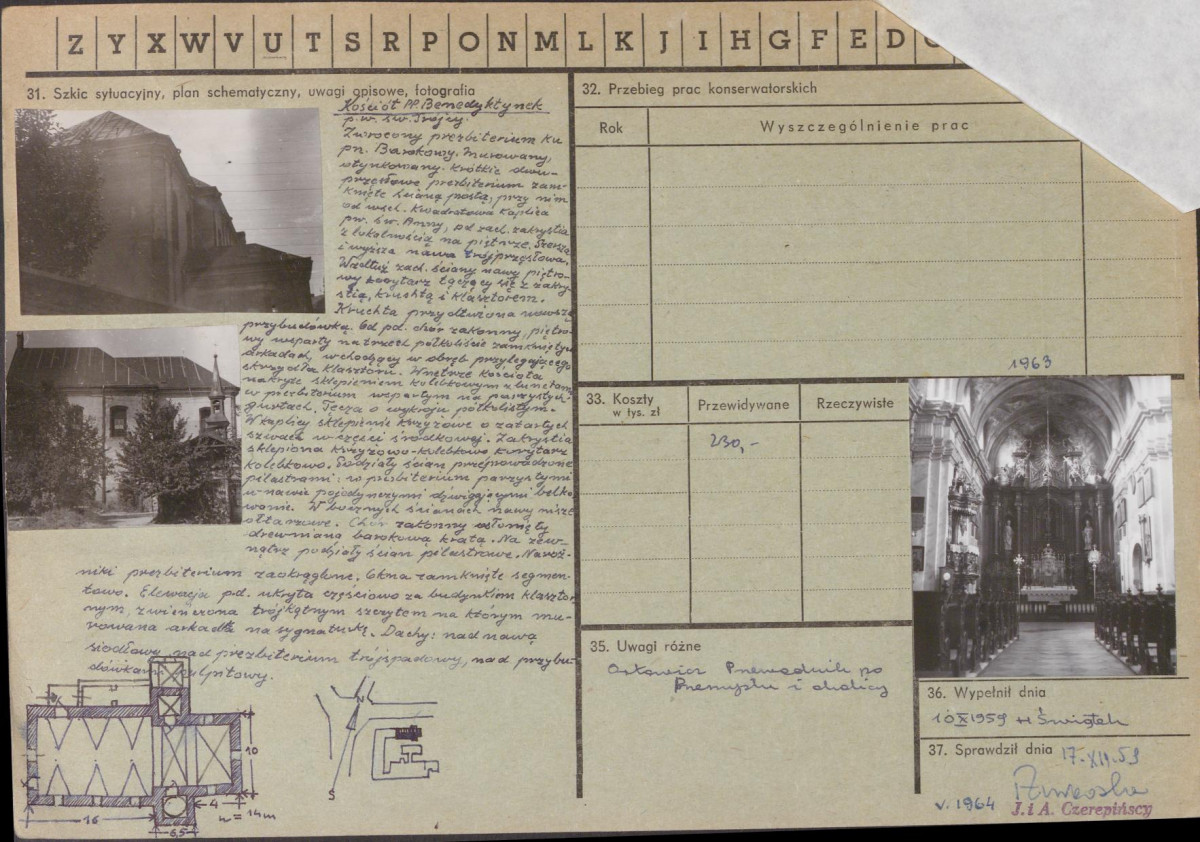 Z Y X W V U T S R P O N M L K J I H G F E D
31. Szkic sytuacyjny, plan schematyczny, uwagi opisowe, fotografia
Kościół PP. Benedyktynek
p.w. św. Trójcy.
Zwrócony prezbiterium ku
pn. Barokowy. Murowany,
otynkowany. Krótkie dwu-
przęsłowe prezbiterium zam-
knięte ścianą prostą, przy nim
od wsch. kwadratowa kaplica
pw. św. Anny, od zach. zakrystia
z lokalnością na piętrze. Szersza
i wyższa nawa trójprzęsłowa.
Wzdłuż zach. ściany nawy piętro-
wy korytarz łączący się z zakry-
stią, kruchtą i klasztorem.
Kruchta przydłużona nowszą
przybudówką. Od pd. chór zakonny, piętro-
wy wsparty na trzech półkoliście zamkniętych
arkadach, wchodzący w obręb przylegającego
skrzydła klasztoru. Wnętrze kościoła
nakryte sklepieniem kolebkowym z lunetami
w prezbiterium wspartym na parzystych
gurtach. Tęcza o wykroju półkolistym.
W kaplicy sklepienie krzyżowe o zatartych
szwach w części środkowej. Zakrystia
sklepiona krzyżowo-kolebkowo korytarz
kolebkowo. Podziały ścian przeprowadzone
pilastrami: w prezbiterium parzystymi
w nawie pojedynczymi dźwigającymi belko-
wanie. W bocznych ścianach nawy nisze
ołtarzowe. Chór zakonny osłonięty
drewnianą barokową kratą. Na zew-
nątrz podziały ścian pilastrowe. Naroż-
niki prezbiterium zaokrąglone. Okna zamknięte segmen-
towo. Elewacja pd. ukryta częściowo za budynkiem klasztor-
nym, zwieńczona trójkątnym szczytem na którym mu-
rowana arkadka na sygnaturkę. Dachy: nad nawą
siodłowy, nad prezbiterium trójspadowy, nad przybu-
dówkami pulpitowy.
10
16
4
6,5
w = 14m
S
32. Przebieg prac konserwatorskich
Rok Wyszczególnienie prac
1963
33. Koszty
w tys. zł
Przewidywane Rzeczywiste
230,-
35. Uwagi różne
Orłowicz Przewodnik po
Przemyślu i okolicy
36. Wypełnił dnia
10 X 1959 H Świątek
37. Sprawdził dnia 17.XII.59
v. 1964
J. i A. Czerepińscy